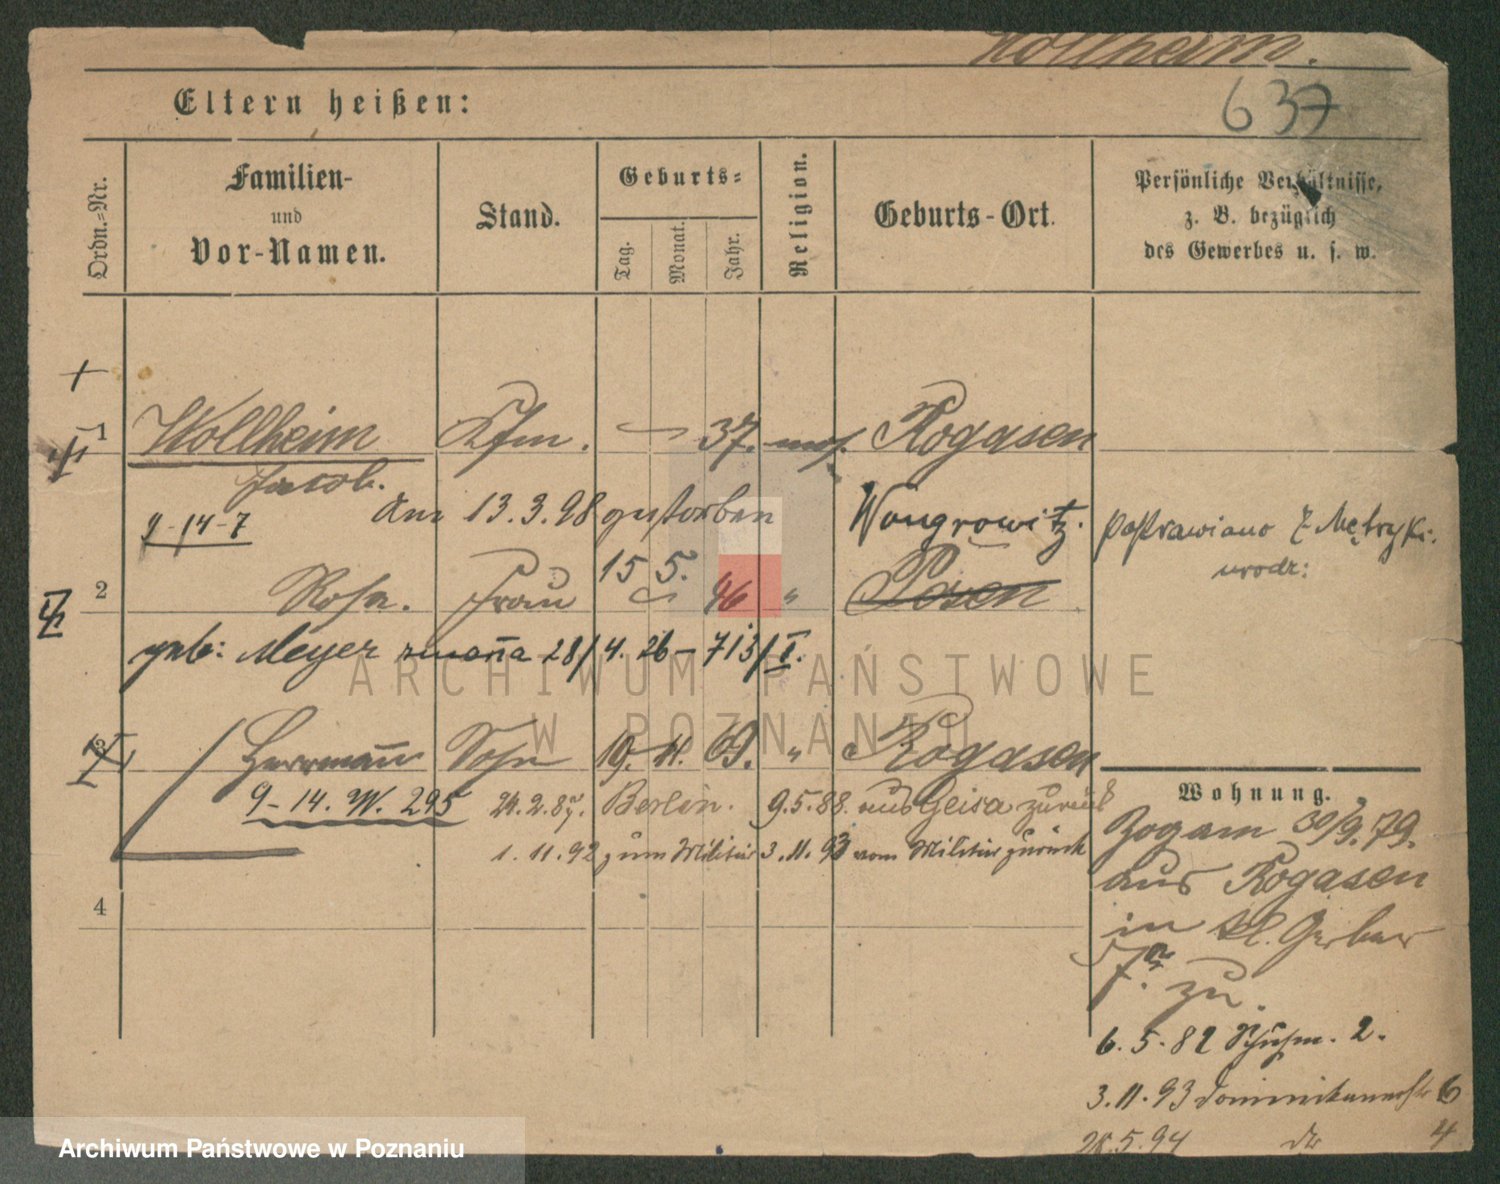 Wollheim.
637
Eltern heißen:
Ordn.-Nr.
Familien-
und
Vor-Namen.
Stand.
Geburts-
Tag.
Monat.
Jahr.
Religion.
Geburts-Ort.
Persönliche Verhältnisse,
z. B. bezüglich
des Gewerbes u. s. w.
1 Wollheim Kfm. 37. mos. Rogasen
Jacob.
am 13.3.98 gestorben
9-14-7
Wongrowitz.
poprawiano z Metryki:
urodz:
15 5.
2 Rosa. Frau 46 " Posen
geb: Meyer zmarła 28/4. 26 - 713/I.
ARCHIWUM PAŃSTWOWE
W POZNANIU
3 Herrmann Sohn 19. 11. 69. " Rogasen
9-14. W. 295 24.2.87. Berlin. 9.5.88. aus Geisa zurück
1.11.92 zum Militär 3.11.93 vom Militär zurück
4
Wohnung.
Zogam 30/9.79.
aus Rogasen
in Kl. Gerber
7a. zu.
6.5.82 Schuhm. 2.
3.11.93 Dominikanerstr 6
28.5.94 do 4
Archiwum Państwowe w Poznaniu